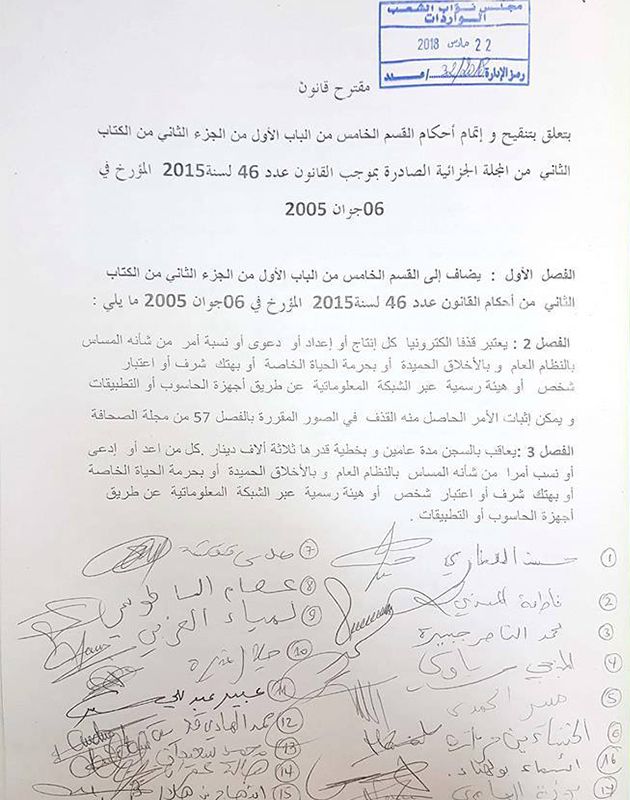 مجلس نواب الشعب
الـواردات
22 مارس 2018
رمز الإدارة / عـدد
مقترح قانون
يتعلق بتنقيح و إتمام أحكام القسم الخامس من الباب الأول من الجزء الثاني من الكتاب
الثاني من المجلة الجزائية الصادرة بموجب القانون عدد 46 لسنة2015 المؤرخ في
06جوان 2005
الفصل الأول : يضاف إلى القسم الخامس من الباب الأول من الجزء الثاني من الكتاب
الثاني من أحكام القانون عدد 46 لسنة2015 المؤرخ في 06جوان 2005 ما يلي :
الفصل 2 : يعتبر قذفا الكترونيا كل إنتاج أو إعداد أو دعوى أو نسبة أمر من شأنه المساس
بالنظام العام و بالأخلاق الحميدة أو بحرمة الحياة الخاصة أو بهتك شرف أو اعتبار
شخص أو هيئة رسمية عبر الشبكة المعلوماتية عن طريق أجهزة الحاسوب أو التطبيقات
و يمكن إثبات الأمر الحاصل منه القذف في الصور المقررة بالفصل 57 من مجلة الصحافة
الفصل 3 :يعاقب بالسجن مدة عامين و بخطية قدرها ثلاثة ألاف دينار .كل من اعد أو إدعى
أو نسب أمرا من شأنه المساس بالنظام العام و بالأخلاق الحميدة أو بحرمة الحياة الخاصة
أو بهتك شرف أو اعتبار شخص أو هيئة رسمية عبر الشبكة المعلوماتية عن طريق
أجهزة الحاسوب أو التطبيقات .
1
2 فاطمة المسدي
3 محمد الناصر جبيرة
4
5
6
16
17
7
8 عصام
9 لمياء
10
11 عبير
12 عبد الهادي
13 محمد سعيدان
14 هالة
15